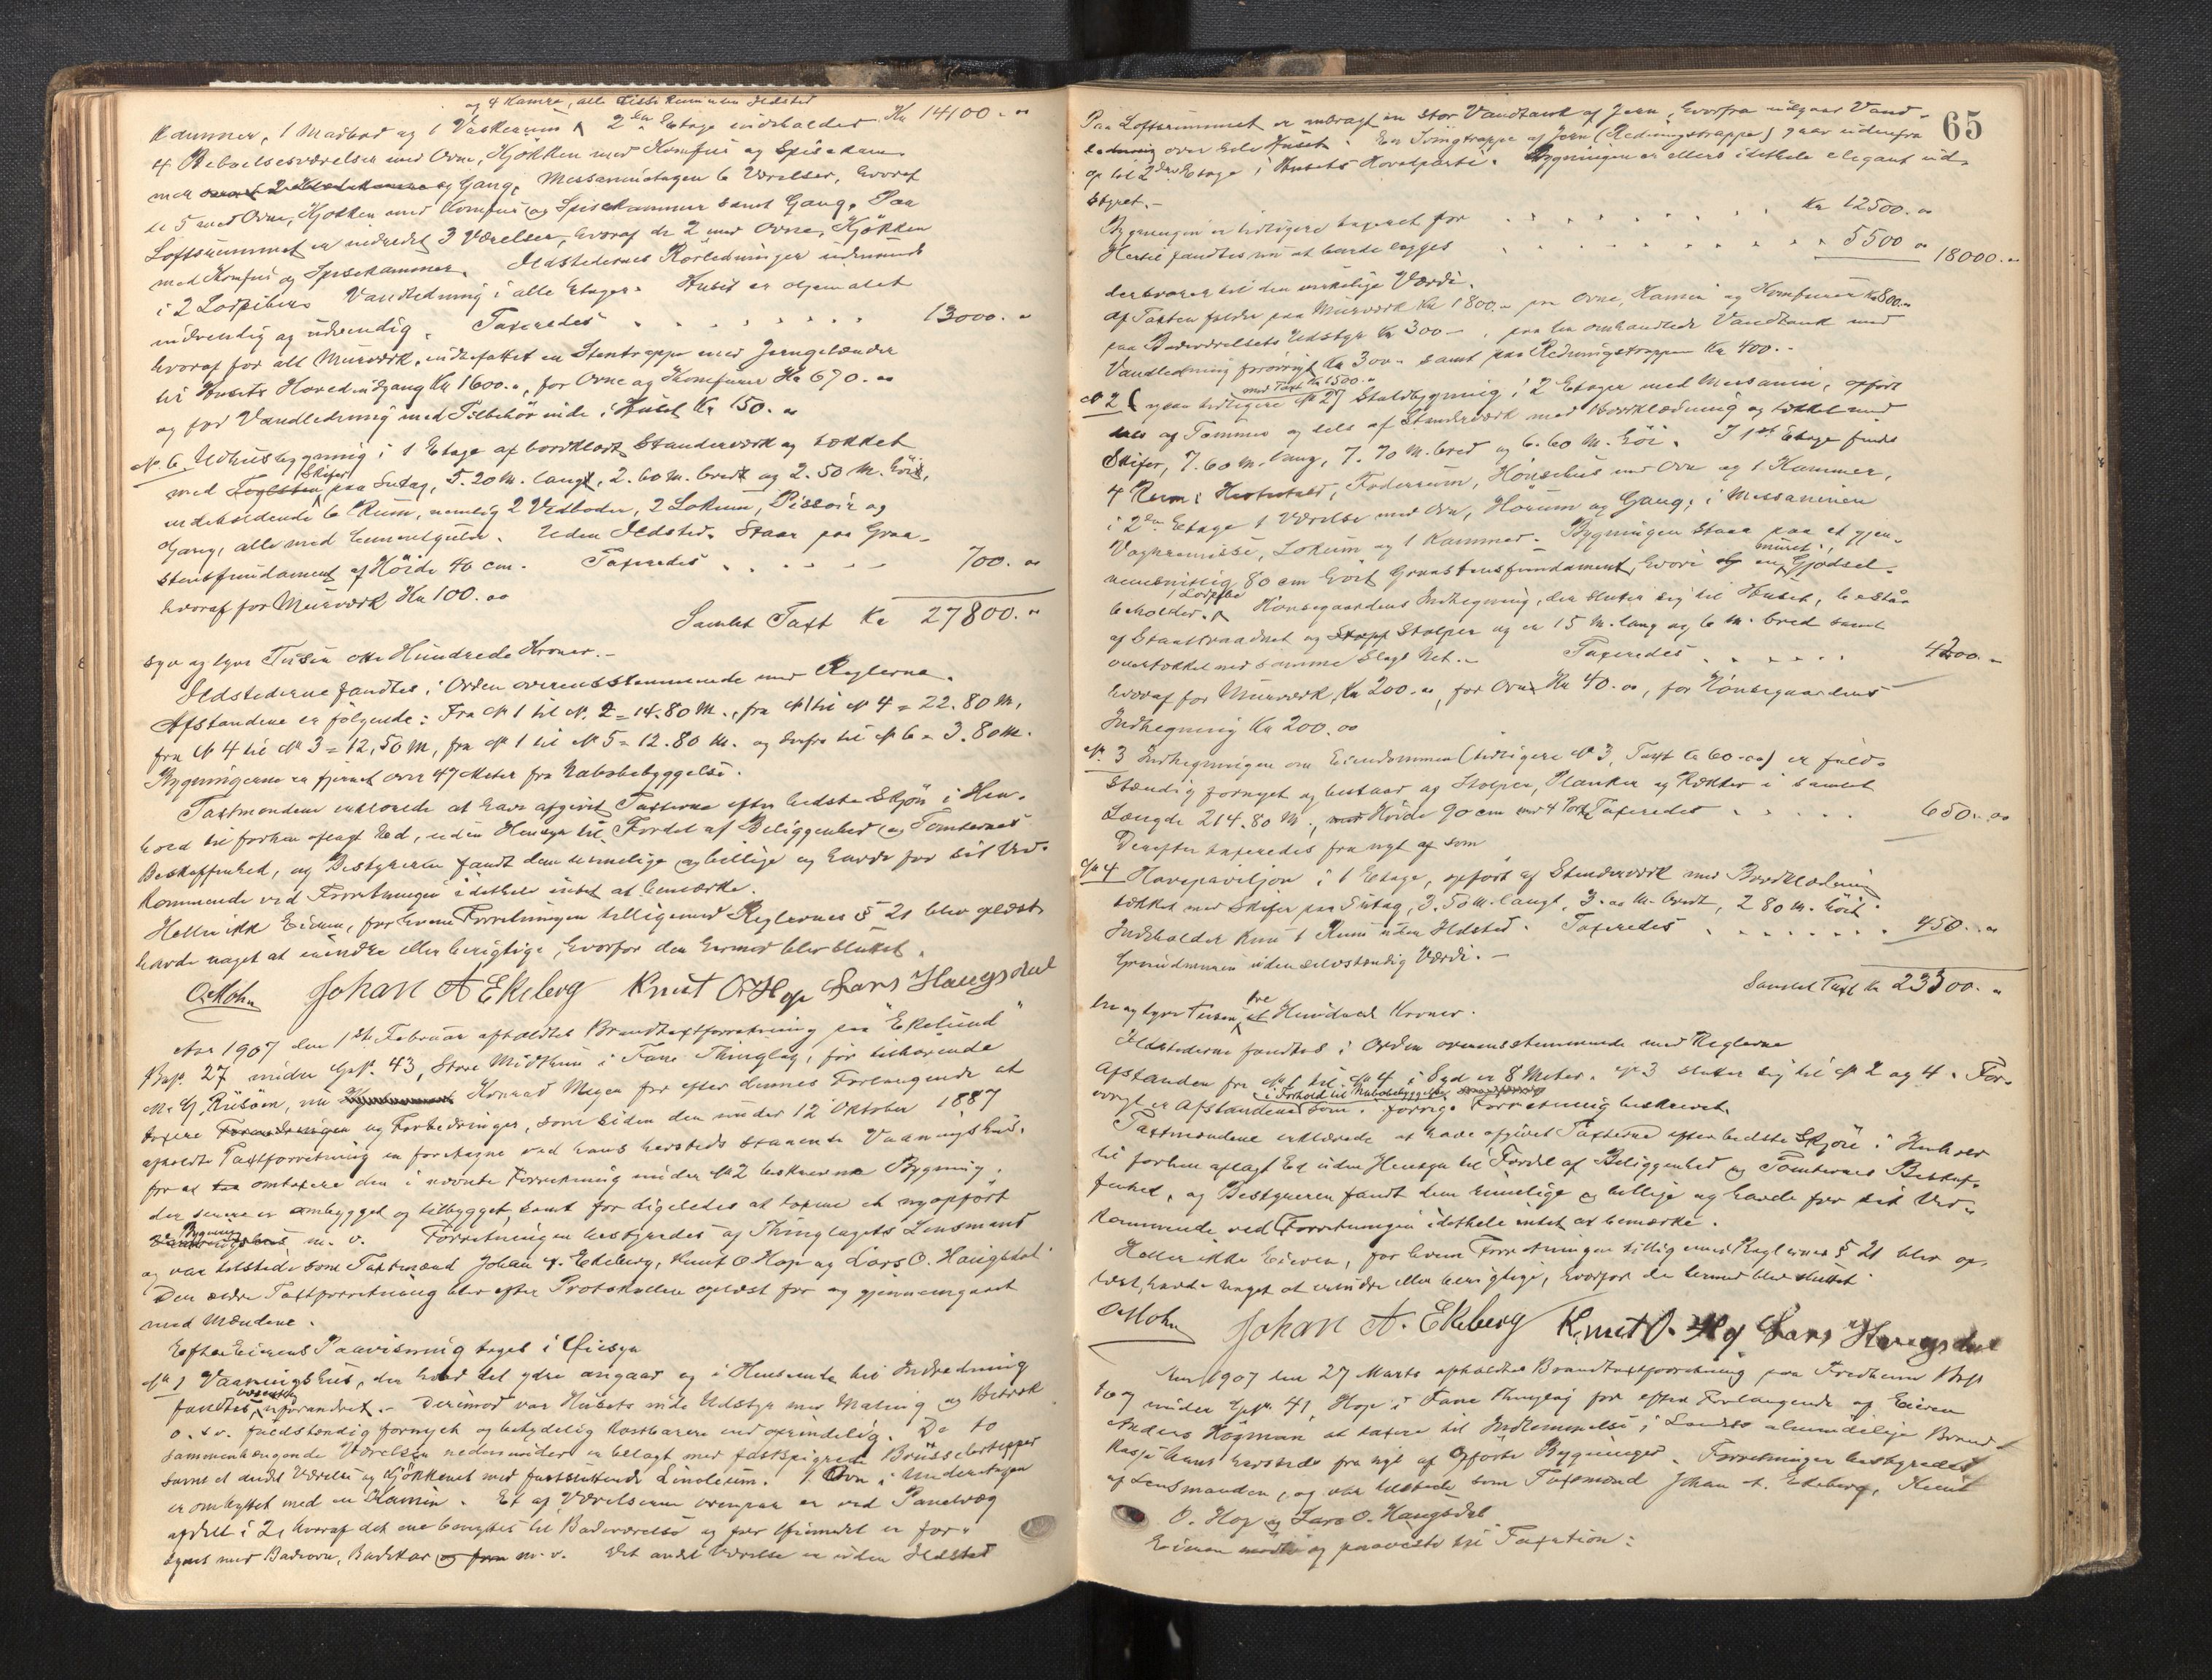 og 4 Kamre, alle disse Rum uden Ildsted
Kammer, 1 Madbod og 1 Vaskerum 2den Etage indeholder Kr 14100.00
4 Beboelsesværelser med Ovne, Kjøkken med Komfur og Spisekam-
mer Gang. Messaninetagen 6 Værelser, hvoraf
de 5 med Ovne, Kjøkken med Komfur og Spisekammer samt Gang. Paa
Loftsrummet er indredet 3 Værelser, hvoraf de 2 med Ovne, Kjøkken
med Komfur og Spisekammer. Ildstedernes Rørledninger udmunde
i 2 Lodpiber. Vandledning i alle Etager. Huset er oljemalet
indvendig og udvendig. Taxeredes 13000.00
hvoraf for alt Murværk, indbefattet en Stentrappe med Jerngelænder
til Husets Hovedindgang Kr 1600.00, for Ovne og Komfurer Kr 670.00
og for Vandledning med Tilbehør inde i Huset Kr 150.00
No. 6. Udhusbygning i 1 Etage af bordklædt Standerværk og tækket
Skifer
med Teglsten paa Sutag, 5.20 M. langt, 2.60 M. bredt og 2.50 M. høit,
indeholdende 6 Rum, nemlig 2 Vedboder, 2 Lokum, Pissoir og
Gang, alle med Cementgulv. Uden Ildsted. Staar paa Graa-
stensfundament af Høide 40 cm. Taxeredes 700.00
hvoraf for Murværk Kr 100.00
Samlet Taxt Kr 27800.00
syv og tyve Tusen otte Hundrede Kroner.-
Ildstederne fandtes i Orden overensstemmende med Reglerne.
Afstandene er følgende: Fra No 1 til No. 2 = 14.80 M., fra No 1 til No 4 = 22.80 M,
fra No 4 til No 3 = 12,50 M, fra No 1 til No 5 = 12.80 M. og derfra til No 6 = 3.80 M.
Bygningerne er fjernet over 47 Meter fra Nabobebyggelse.
Taxtmændene erklærede at have afgivet Taxterne efter bedste Skjøn i Hen-
hold til forhen aflagt Ed, uden Hensyn til Fordel af Beliggenhed og Tomternes
Beskaffenhed, og Bestyreren fandt dem rimelige og billige og havde for sit Ved-
kommende ved Forretningen idethele intet at bemærke.
Heller ikke Eieren, for hvem Forretningen tilligemed Reglernes § 21 blev oplæst
havde noget at erindre eller berigtige, hvorfor den hermed blev sluttet.
O Mohn Johan A Ekeberg Knut O Hop Lars Haugsdal
Aar 1907 den 1ste Februar afholdtes Brandtaxtforretning paa "Ekelund"
Bno. 27 under Gno. 43, Store Midttun i Fane Thinglag, før tilhørende
M. G. Riisøen, nu Konrad Meyer for efter dennes Forlangende at
taxere Forandringer og Forbedringer, som siden den under 12 Oktober 1887
afholdte Taxtforretning er foretagne ved hans hersteds staaende Vaaningshus,
for at omtaxere den i nævnte Forretning under No 2 beskrevne Bygning,
der senere er ombygget og tilbygget, samt for digeledes at taxere et nyopført
Bygning
m. v. Forretningen bestyredes af Thinglagets Lensmand
og var tilstede som Taxtmænd Johan A. Ekeberg, Knut O Hop og Lars O. Haugsdal
Den ældre Taxtforretning blev efter Protokollen oplæst for og gjennemgaaet
med Mændene.
Efter Eierens Paavisning toges i Øiesyn
No 1 Vaaningshus, der hvad det ydre angaar og i Henseende til Indredning
væsentlig
fandtes uforandret. - Derimod var Husets inde Udstyr med Maling og Betræk
o. s. v. fuldstændig fornyet og betydelig kostbarere end oprindelig. De to
sammenhængende Værelser nedenunder er belagt med fastspigrede Brüsselertepper
samt et andet Værelse og Kjøkkenet med fastsittende Linoleum. 1 Ovn i Underetagen
er ombyttet med en Kamin. Et af Værelserne ovenpaa er ved Panelvæg
afdelt i 2, hvoraf det ene benyttes til Badeværelse og per Øiemedet er for-
synet med Badeovn, Badekar m. v. Det andet Værelse er uden Ildsted
65
Paa Loftsrummet er anbragt en stor Vandtank af Jern, hvorfra udgaar Vand-
ledning over hele Huset. En Svingtrappe af Jern (Redningstrappe) gaar udenfra
op til 2den Etage i Husets Hovedparti. Bygningen er ellers idethele elegant ud-
styret.-
Bygningen er tidligere taxeret for Kr 12500.00
Hertil fandtes nu at burde lægges 5500 00 18000.00
der svarer til den virkelige Værdi.
Af Taxten falder paa Murværk Kr 1800.-, paa Ovne, Kamin og Komfurer Kr 800.00
paa Badeværelsets Udstyr Kr 300.-, paa den omhandlede Vandtank med
Vandledning forøvrigt Kr 300.- samt paa Redningstrappen Kr 400.-
med Taxt Kr 1500.00
No 2 (ogsaa tidligere No 2) Staldbygning i 2 Etager med Messanin, opført
dels af Tømmer og dels af Standerværk med Bordklædning og tækket med
Skifer, 7.60 M. lang, 7.70 M. bred og 6.60 M. høi. I 1ste Etage findes
4 Rum: Hestestald, Foderrum, Hønsehus med Ovn og 1 Kammer,
i 2den Etage 1 Værelse med Ovn, Hørum og Gang; i Messaninen
Vognremisse, Lokum og 1 Kammer. Bygningen staar paa et gjen-
muret
nemsnitlig 80 cm høit Graastensfundament, hvori en Gjødsel-
1 Lodpibe
beholder. Hønsegaardens Indhegning, der slutter sig til Huset, bestaar
af Staaltraadnet og Stolper og er 15 M. lang og 6 M. bred samt
overtækket med samme Slags Net.- Taxeredes 4200.-
hvoraf for Murværk Kr 200.00, for Ovne Kr 40.00, for Hønsegaardens
Indhegning Kr 200.00
No. 3 Indhegningen om Eiendommen (tidligere No 3, Taxt Kr 60.00) er fuld-
stændig fornyet og bestaar af Stolper, Planker og Rækker i samlet
Længde 214.80 M., Høide 90 cm med 4 Porte Taxeredes 650.00
Derefter taxeredes fra nyt af som
No 4 Havepaviljon i 1 Etage, opført af Standerværk med Bordklædning
tækket med Skifer paa Sutag, 3.50 M. langt, 3.00 M. bredt, 2 80 M. høit.
Indeholder kun 1 Rum uden Ildsted. Taxeredes 450.00
Grundmuren uden selvstændig Værdi.-
Samlet Taxt Kr 23300.00
tre
tre og tyve Tusen Hundrede Kroner.
Ildstederne fandtes i Orden overensstemmende med Reglerne
Afstanden fra No 1 til No 4 i Syd er 8 Meter. No 3 slutter sig til No 2 og 4. For-
i Forhold til Nabobebyggelse
øvrigt er Afstandene som i forrige Forretning beskrevet.
Taxtmændene erklærede at have afgivet Taxterne efter bedste Skjøn i Henhold
til forhen aflagt Ed uden Hensyn til Fordel af Beliggenhed og Tomternes Beskaf-
fenhed, og Bestyreren fandt dem rimelige og billige og havde for sit Ved-
kommende ved Forretningen idethele intet at bemærke.
Heller ikke Eieren, for hvem Forretningen tilligemed Reglernes § 21 blev op-
læst, havde noget at erindre eller berigtige, hvorfor den hermed blev sluttet.
O Mohn Johan A. Ekeberg Knut O. Hop Lars Haugsdal
Aar 1907 den 27 Marts afholdtes Brandtaxtforretning paa Fredheim Bno
under Gno. 41, Hop i Fane Thinglag for efter Forlangende af Eieren
Anders Högman at taxere til Indlemmelse i Landets almindelige Brand-
kasse hans hersteds fra nyt af opførte Bygninger. Forretningen bestyredes
af Lensmanden, og var tilstede som Taxtmænd Johan A. Ekeberg, Knut
O. Hop og Lars O. Haugsdal
Eieren mødte og paaviste til Taxation: